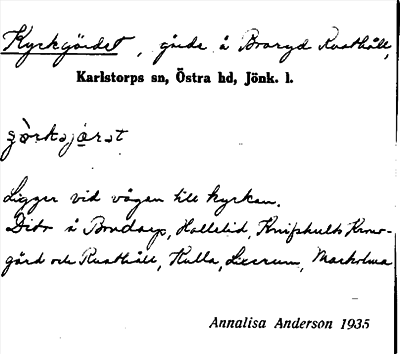 Kyrkgärdet, gärde å Braryd Rusthåll,
Karlstorps sn, Östra hd, Jönk. l.
Ligger vid vägen till kyrkan.
Dito å Brodarp, Hallelid, Knifshults Krono-
gård och Rusthåll, Kulla,
Annalisa Anderson 1935